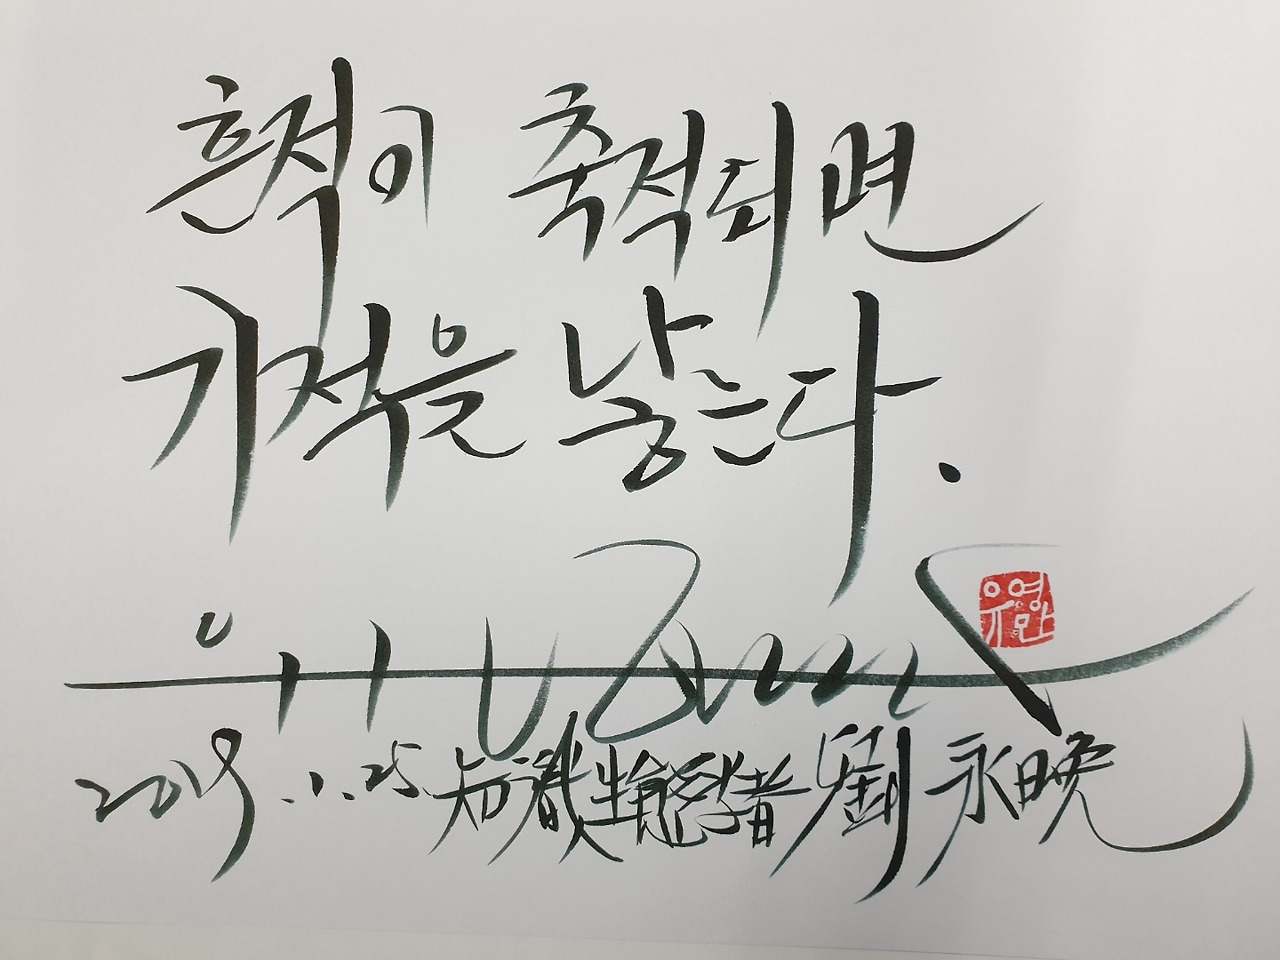 흔적이 축적되면
기적을 낳는다.
유영만
2019.1.25. 知識生態學者 劉永晩